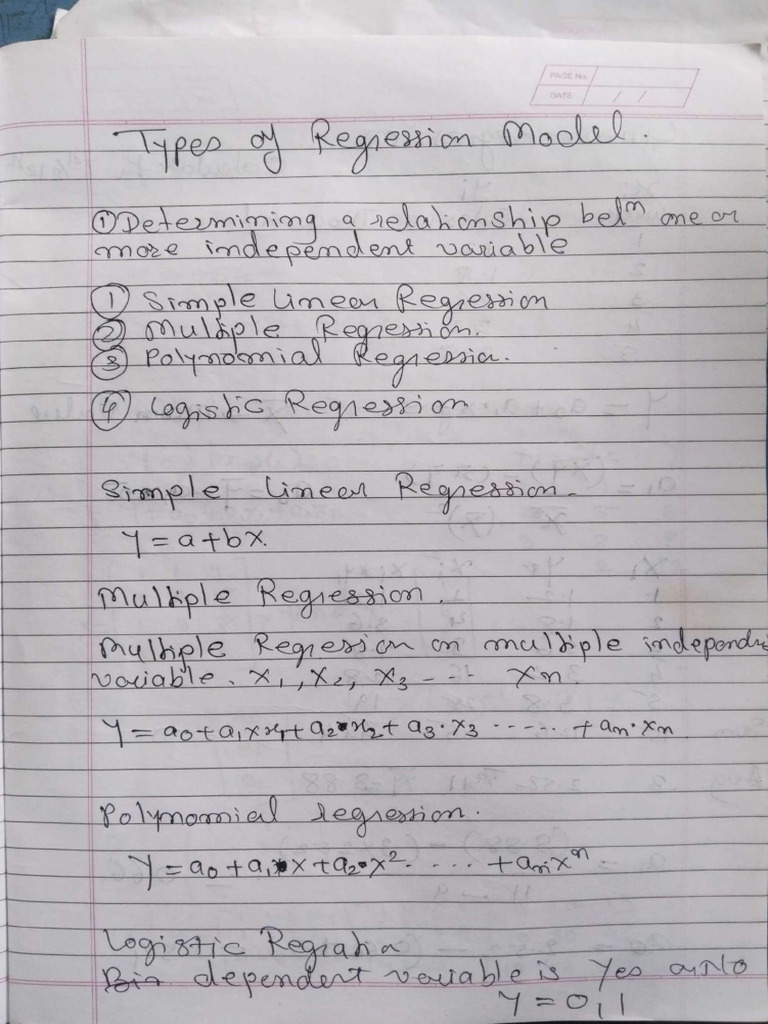 PAGE No.
DATE / /
Types of Regression Model.
① Determining a relationship betⁿ one or
more independent variable
① Simple Linear Regression
② Multiple Regression.
③ Polynomial Regressia.
④ Logistic Regression
Simple Linear Regression.
Y = a + bx.
Multiple Regression.
Multiple Regression on multiple independ
variable. x₁, x₂, x₃ --- xn.
Y = a₀ + a₁ x x₁ + a₂ • x₂ + a₃ · x₃ ------ + an · xn
Polynomial regression.
Y = a₀ + a₁ • x + a₂ • x² - ... + an xⁿ.
Logistic Regratia
dependent variable is Yes or No
Y = 0, 1